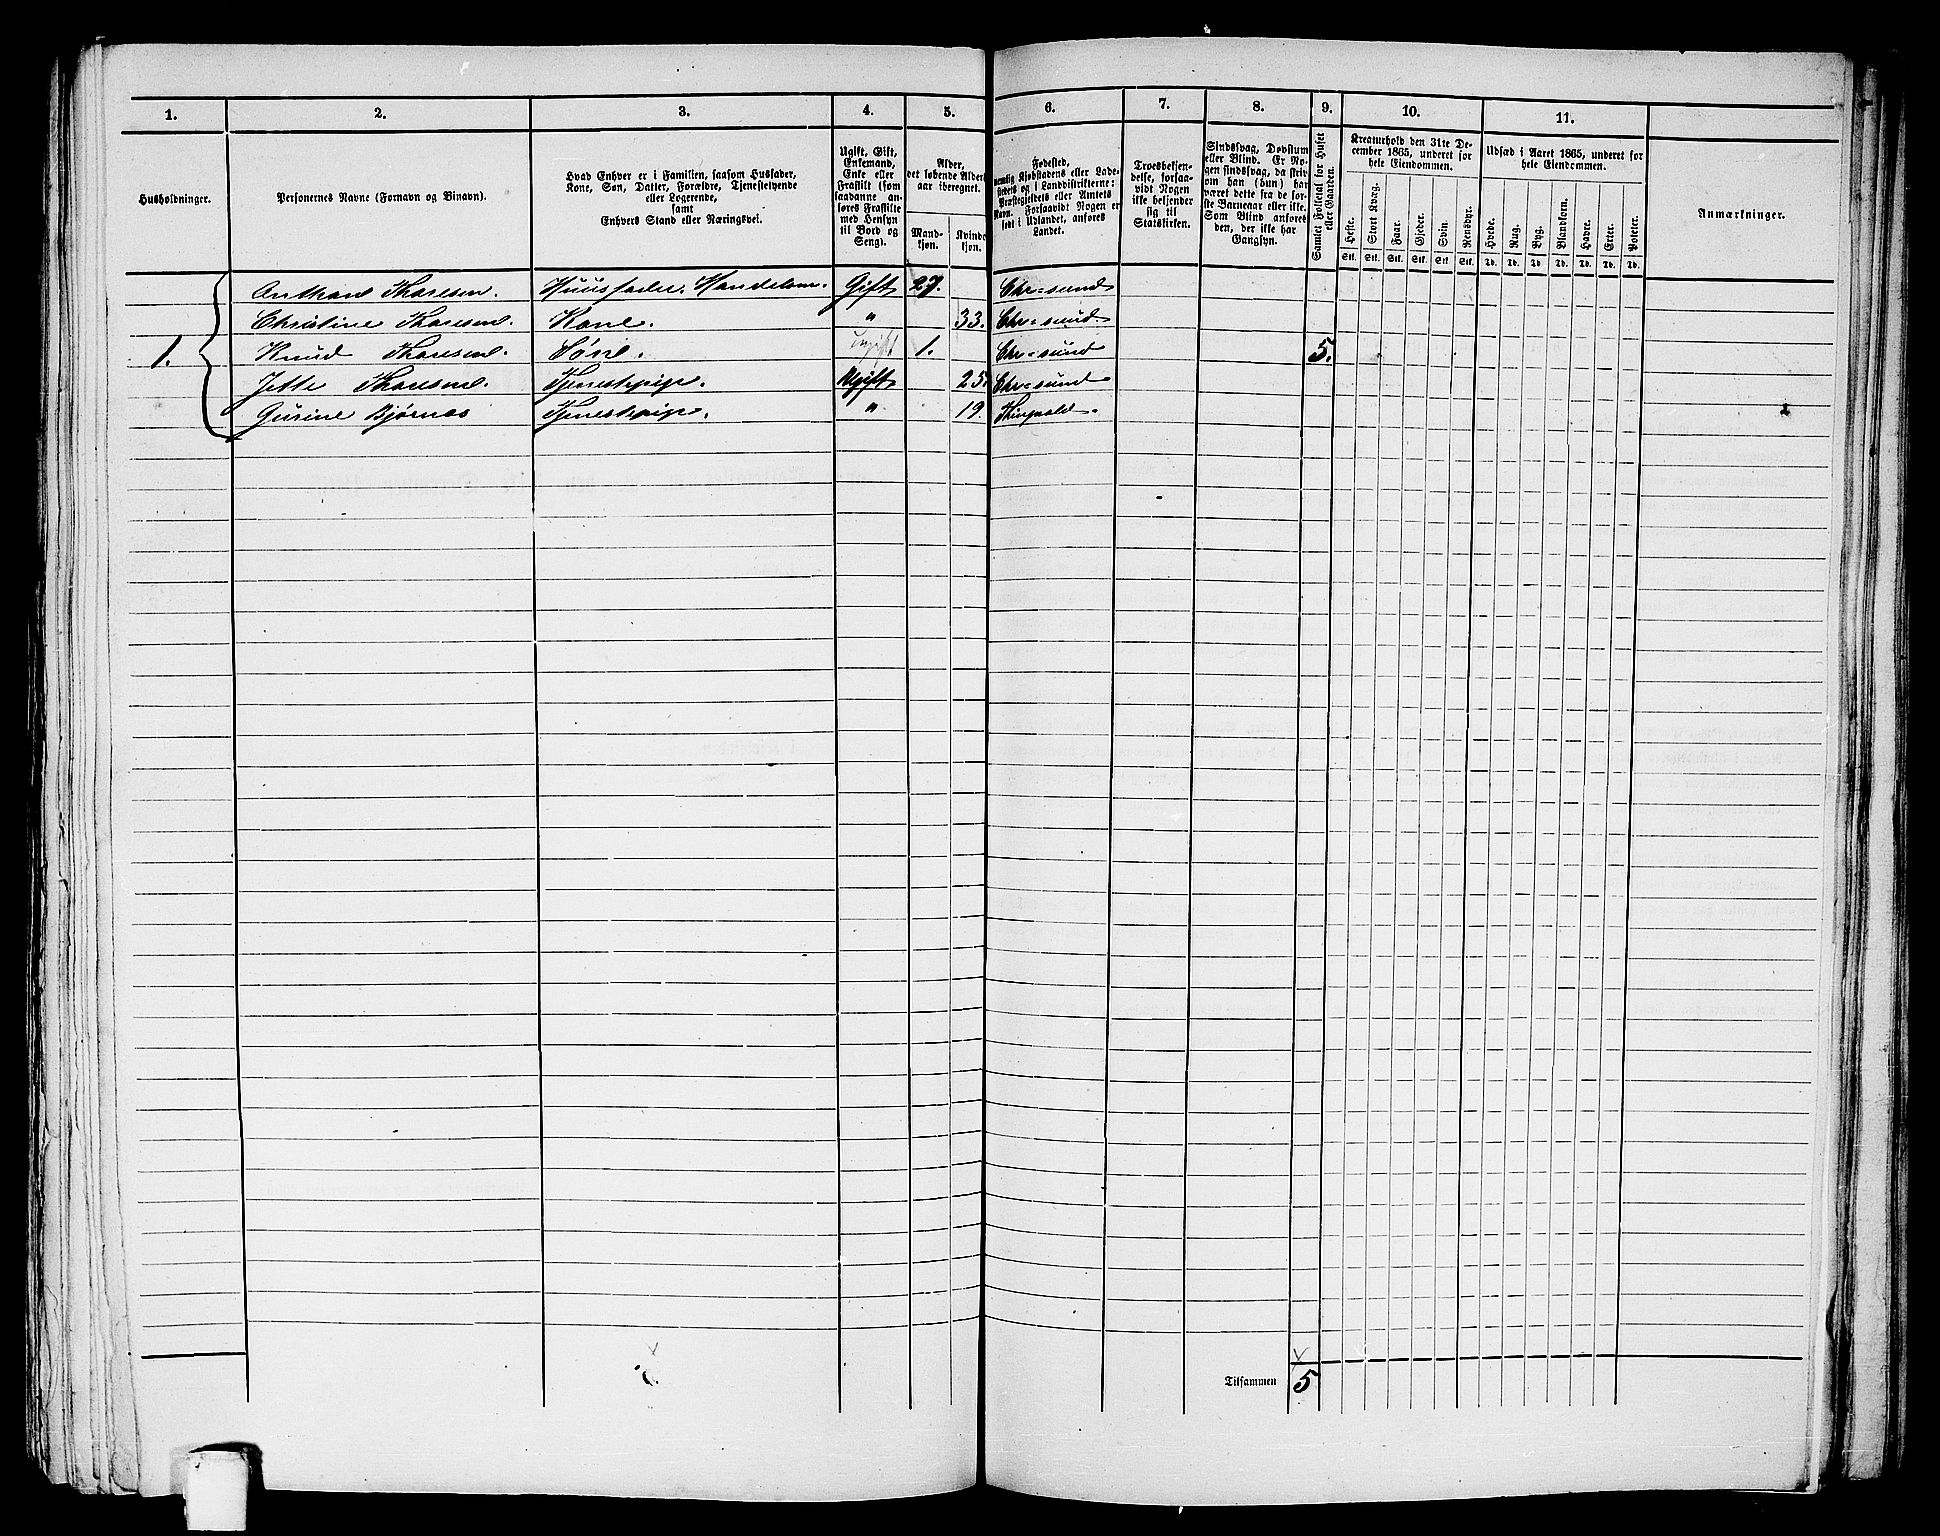 1. 2. 3. 4. 5. 6. 7. 8. 9. 10. 11.
Husholdninger.
Personernes Navne (Fornavn og Binavn).
Hvad Enhver er i Familien, saasom Husfader,
Kone, Søn, Datter, Forældre, Tjenestetyende
eller Logerende,
samt
Enhvers Stand eller Næringsvei.
Ugift, Gift,
Enkemand,
Enke eller
Fraskilt (som
saadanne an-
føres Fraskilte
med Hensyn
til Bord og
Seng).
Alder,
det løbende Alders-
aar iberegnet.
Mand-
kjøn.
Kvinde-
kjøn.
Fødested,
nemlig Kjøbstadens eller Lade-
stedets og i Landdistrikterne:
Præstegjeldets eller Amtets
Navn. Forsaavidt Nogen er
født i Udlandet, anføres
Landet.
Troesbekjen-
delse, forsaa-
vidt Nogen
ikke bekjender
sig til
Statskirken.
Sindssvag, Døvstum
eller Blind. Er No-
gen sindssvag, da skriv
om han (hun) har
været dette fra de før-
ste Barneaar eller ikke.
Som Blind anføres
den, der ikke har
Gangsyn.
Samlet Folketal for Huset
eller Gaarden.
Kreaturhold den 31te De-
cember 1865, underet for
hele Eiendommen.
Heste. Stort Kvæg. Faar. Gjeder. Svin. Rensdyr.
Stk. Stk. Stk. Stk. Stk. Stk.
Udsæd i Aaret 1865, underet for
hele Eiendommen.
Hvede. Rug. Byg. Blandkorn. Havre. Erter. Poteter.
Td. Td. Td. Td. Td. Td. Td.
Anmærkninger.
Anthon Thoresen. Huusfader. Handelsm. Gift 27. Chr=sund
Christine Thoresen. Kone. " 33. Chr=sund.
1. Knud Thoresen. Søne. ugift 1. Chr=sund 5.
Jette Thoresen. Tjenestepige. Ugift 25. Chr=sund
Gurine Bjørnas Tjenestepige. " 19. Thingvold.
Tilsammen 5